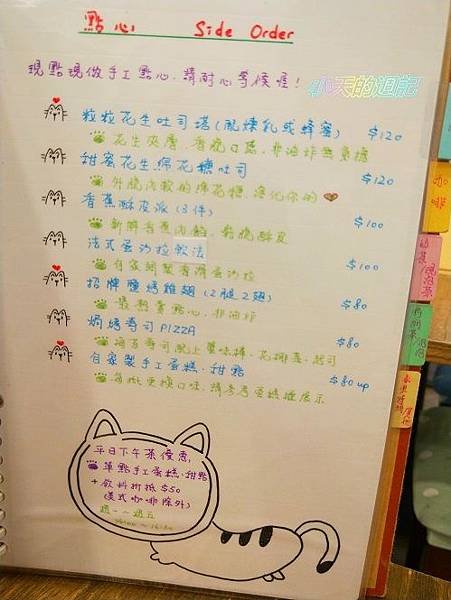 點心 Side Order
現點現做手工點心.請耐心等候喔!
小天的週記
粒粒花生吐司塔(配煉乳或蜂蜜) $120
花生夾層.香脆口感.非油炸無負擔
甜蜜花生棉花糖吐司 $120
外脆內軟的棉花糖.溶化你的
香蕉酥皮派(3件) $100
新鮮香蕉內餡.鬆脆酥皮
法式蛋沙拉軟法 $100
自家調製香濃蛋沙拉
招牌鹽烤雞翅(2腿2翅) $80
最熱賣點心.非油炸
焗烤壽司PIZZA $80
海苔壽司配上蟹味棒.花椰菜.起司
自家製手工蛋糕.甜點 $80up
每批更換口味.請參考蛋糕櫃展示
平日下午茶優惠,
單點手工蛋糕.甜點
+飲料折抵$50
(美式咖啡除外)
週一~週五
咖啡